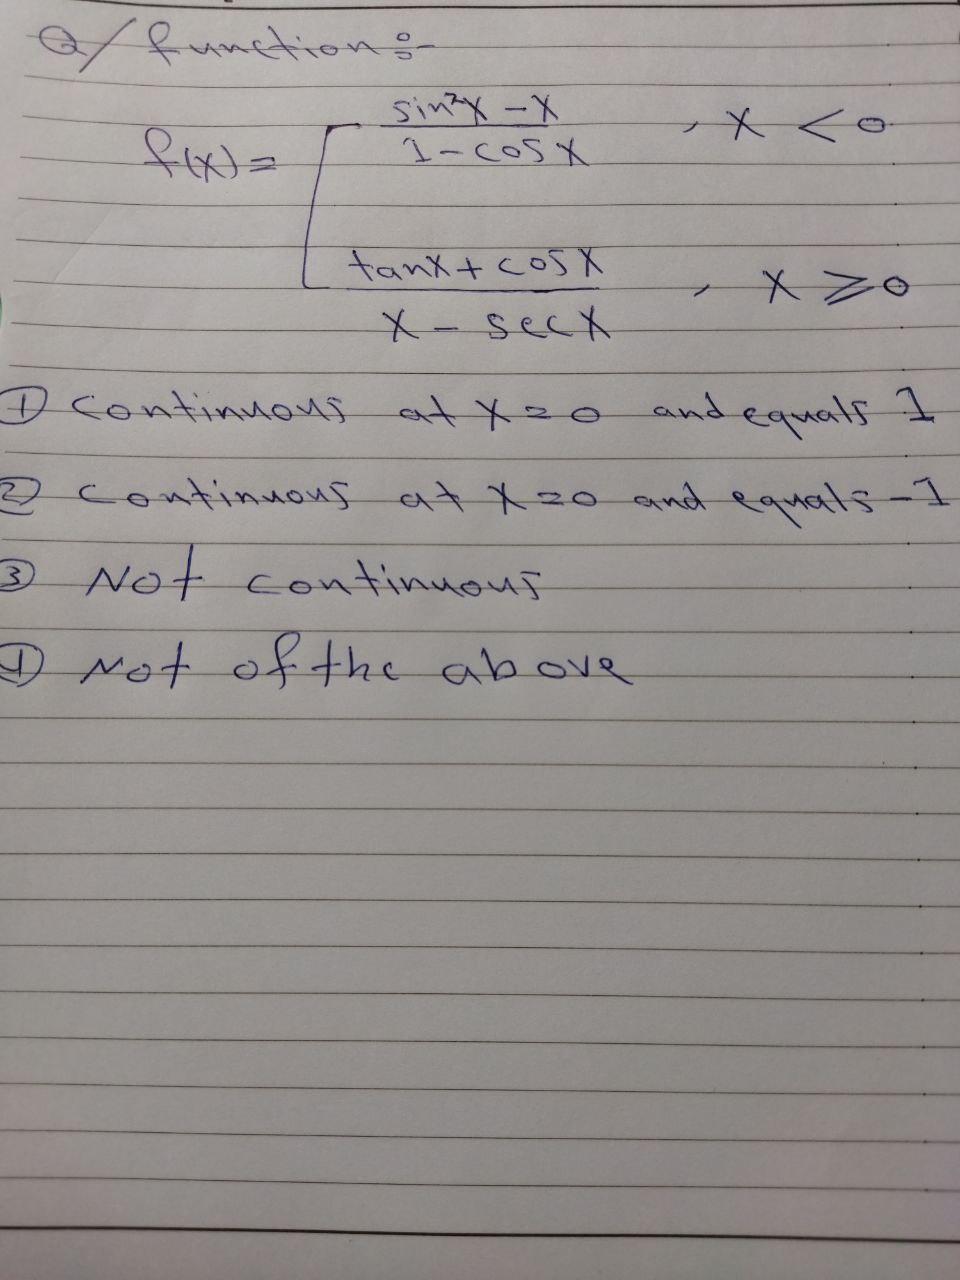 Q/ function :-
f(x) = [ (sin²x - x)/(1 - cosx) , x < 0
(tanx + cosx)/(x - secx) , x ≥ 0
① continuous at x=0 and equals 1
② continuous at x=0 and equals -1
③ Not continuous
④ Not of the above